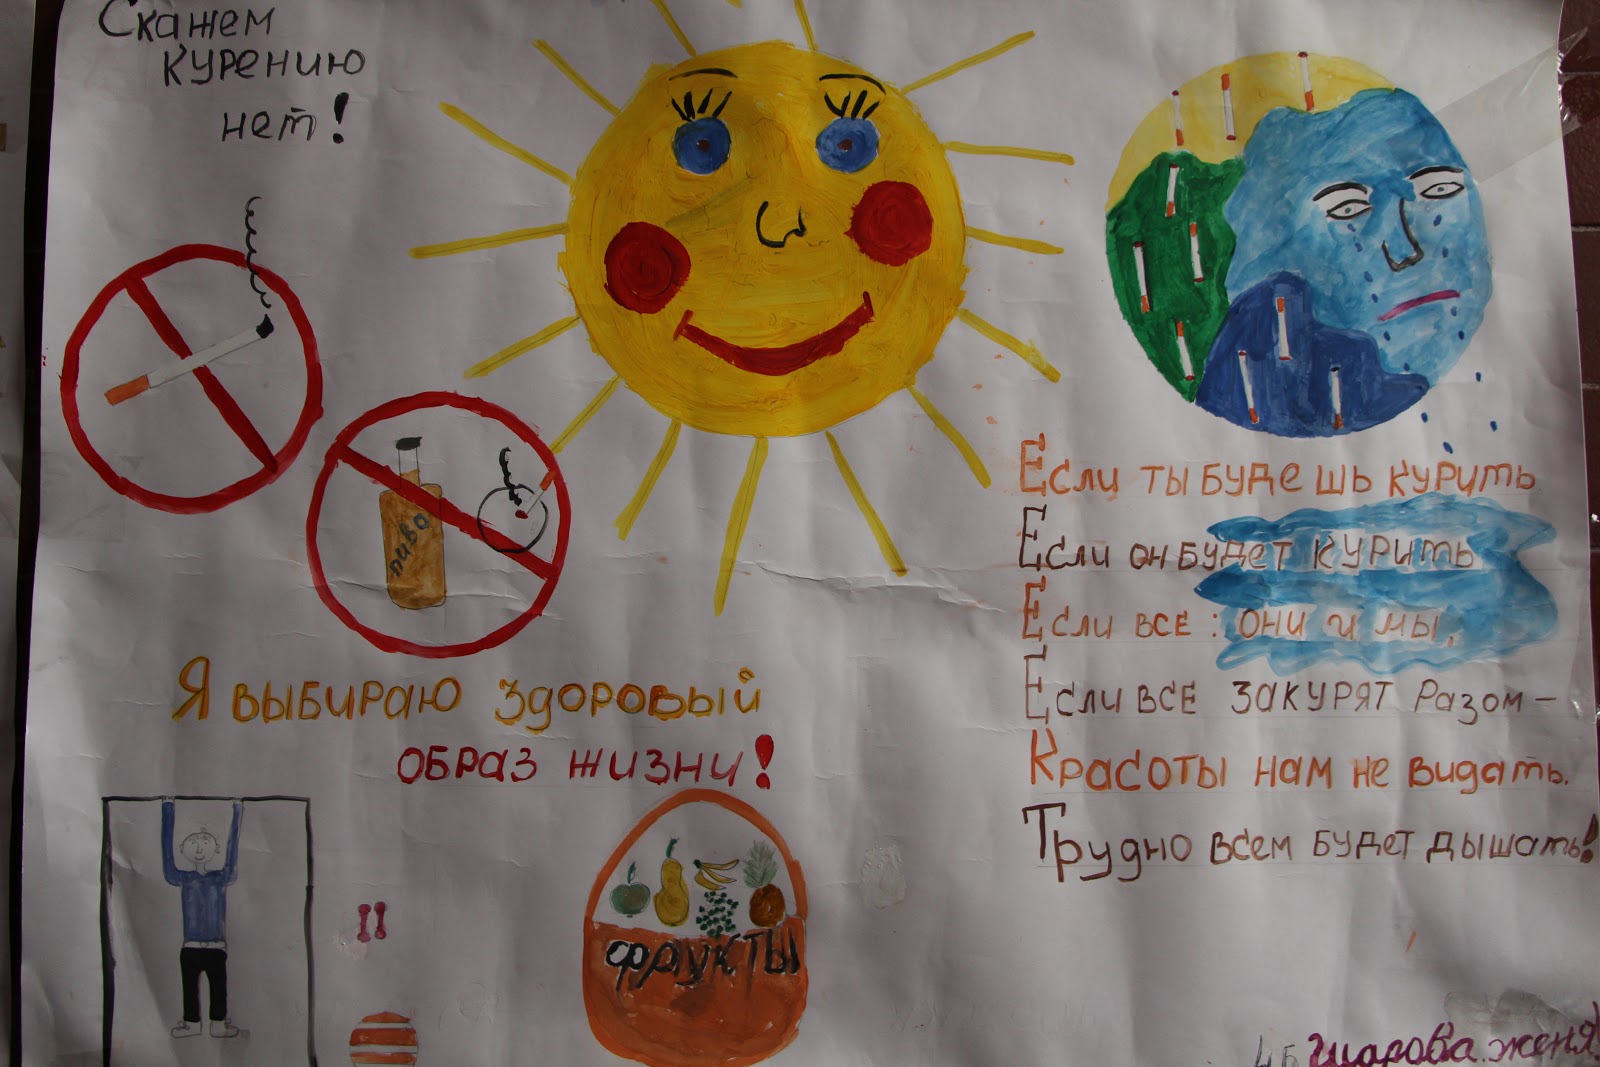 Скажем
курению
нет!
пиво
Я выбираю здоровый
образ жизни!
фрукты
Если ты будешь курить
Если он будет курить
Если все: они и мы,
Если все закурят разом –
Красоты нам не видать.
Трудно всем будет дышать!
4Б Шарова Женя